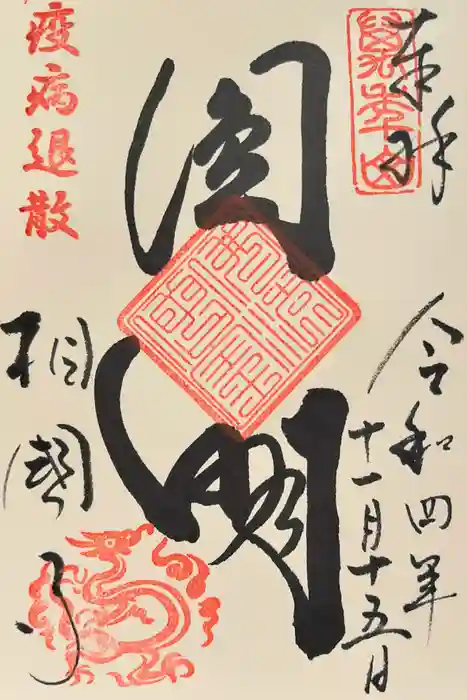 奉拝
萬年山
令和四年
十一月十五日
圓明
疫病退散
相國寺